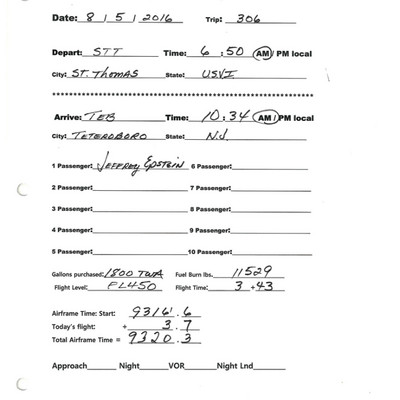 Date: 8/5/2016 Trip: 306
Depart: STT Time: 6:50 AM/PM local
City: ST. THOMAS State: USVI
********************************************************
Arrive: TEB Time: 10:34 AM/PM local
City: TETERBORO State: N.J.
1 Passenger: JEFFREY EPSTEIN 6 Passenger:
2 Passenger: 7 Passenger:
3 Passenger: 8 Passenger:
4 Passenger: 9 Passenger:
5 Passenger: 10 Passenger:
Gallons purchased: 1800 TWA Fuel Burn lbs. 11529
Flight Level: FL450 Flight Time: 3+43
Airframe Time: Start: 9316.6
Today's flight: + 3.7
Total Airframe Time = 9320.3
Approach Night VOR Night Lnd